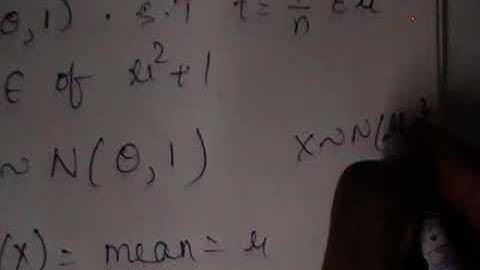 0, 1) . S.T t = 1/n
E of μ² + 1
~ N(θ, 1) X~N(μ
(x) = mean = μ